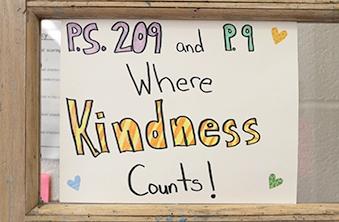 P.S. 209 and P.9
Where
Kindness
Counts!